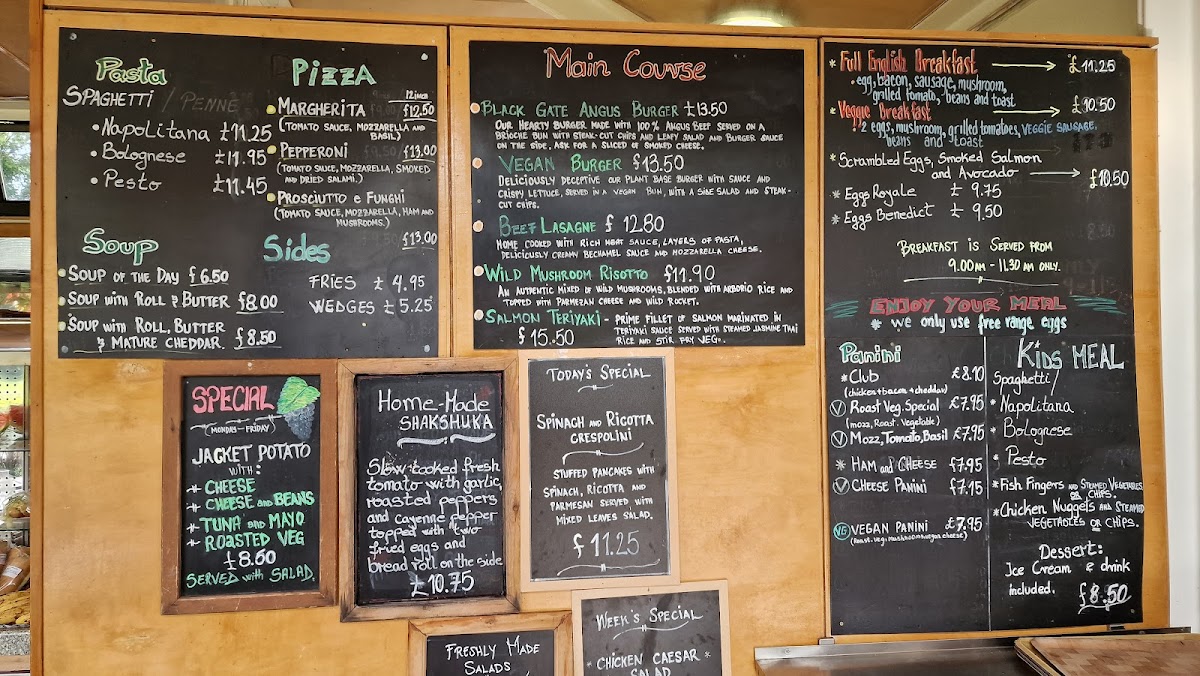 Pasta
SPAGHETTI / PENNE
• Napolitana £11.25
• Bolognese £11.95
• Pesto £11.45
PIZZA
12 inch
• MARGHERITA £12.50
(TOMATO SAUCE, MOZZARELLA AND
BASIL)
• PEPPERONI £13.00
(TOMATO SAUCE, MOZZARELLA, SMOKED
AND DRIED SALAMI.)
• PROSCIUTTO e FUNGHI
(TOMATO SAUCE, MOZZARELLA, HAM AND
MUSHROOMS.)
£13.00
Soup
• SOUP OF THE DAY £6.50
• SOUP WITH ROLL & BUTTER £8.00
• SOUP WITH ROLL, BUTTER
& MATURE CHEDDAR. £8.50
Sides
FRIES £4.95
WEDGES £5.25
Main Course
• BLACK GATE ANGUS BURGER £13.50
OUR HEARTY BURGER MADE WITH 100% ANGUS BEEF SERVED ON A
BRIOCHE BUN WITH STEAK-CUT CHIPS AND LEAFY SALAD AND BURGER SAUCE
ON THE SIDE, ASK FOR A SLICED OF SMOKED CHEESE.
• VEGAN BURGER £13.50
DELICIOUSLY DECEPTIVE OUR PLANT BASE BURGER WITH SAUCE AND
CRISPY LETTUCE, SERVED IN A VEGAN BUN, WITH A SIDE SALAD AND STEAK-
CUT CHIPS.
• BEEF LASAGNE £12.80
HOME COOKED WITH RICH MEAT SAUCE, LAYERS OF PASTA,
DELICIOUSLY CREAMY BECHAMEL SAUCE AND MOZZARELLA CHEESE.
• WILD MUSHROOM RISOTTO £11.90
AN AUTHENTIC MIXED OF WILD MUSHROOMS, BLENDED WITH ARBORIO RICE AND
TOPPED WITH PARMEZAN CHEESE AND WILD ROCKET.
• SALMON TERIYAKI - PRIME FILLET OF SALMON MARINATED IN
TERIYAKI SAUCE SERVED WITH STEAMED JASMINE THAI
RICE AND STIR FRY VEG.
£15.50
* Full English Breakfast → £11.25
• egg, bacon, sausage, mushroom,
grilled tomato, beans and toast
* Veggie Breakfast → £10.50
2 eggs, mushroom, grilled tomatoes, VEGGIE SAUSAGE,
beans and toast
* Scrambled Eggs, Smoked Salmon
and Avocado → £10.50
* Eggs Royale £9.75
* Eggs Benedict £9.50
BREAKFAST IS SERVED FROM
9.00AM - 11.30 AM ONLY.
ENJOY YOUR MEAL
* we only use free range eggs
Panini
* Club £8.10
(chicken+bacon+cheddar)
V Roast Veg. Special £7.95
(mozz, Roast. Vegetable)
V Mozz, Tomato, Basil £7.95
* HAM and CHEESE £7.95
V CHEESE PANINI £7.15
VG VEGAN PANINI £7.95
(Roast. veg. mushroom vegan cheese)
KIDS MEAL
Spaghetti/
* Napolitana
* Bolognese
* Pesto
* Fish Fingers AND STEAMED VEGETABLES
OR CHIPS.
* Chicken Nuggets AND STEAMED
VEGETABLES OR CHIPS.
Dessert:
Ice Cream & drink
included. £8.50
SPECIAL
(MONDAY-FRIDAY)
JACKET POTATO
WITH:
+ CHEESE
+ CHEESE AND BEANS
+ TUNA AND MAYO
+ ROASTED VEG
£8.60
SERVED with SALAD.
HOME-MADE
SHAKSHUKA
Slow cooked fresh
tomato with garlic,
roasted peppers
and cayenne pepper
topped with two
fried eggs and
bread roll on the side
£10.75
TODAY'S SPECIAL
SPINACH AND RICOTTA
CRESPOLINI
STUFFED PANCAKES WITH
SPINACH, RICOTTA AND
PARMESAN SERVED WITH
MIXED LEAVES SALAD.
£11.25
FRESHLY MADE
SALADS
WEEK'S SPECIAL
* CHICKEN CAESAR *
SALAD